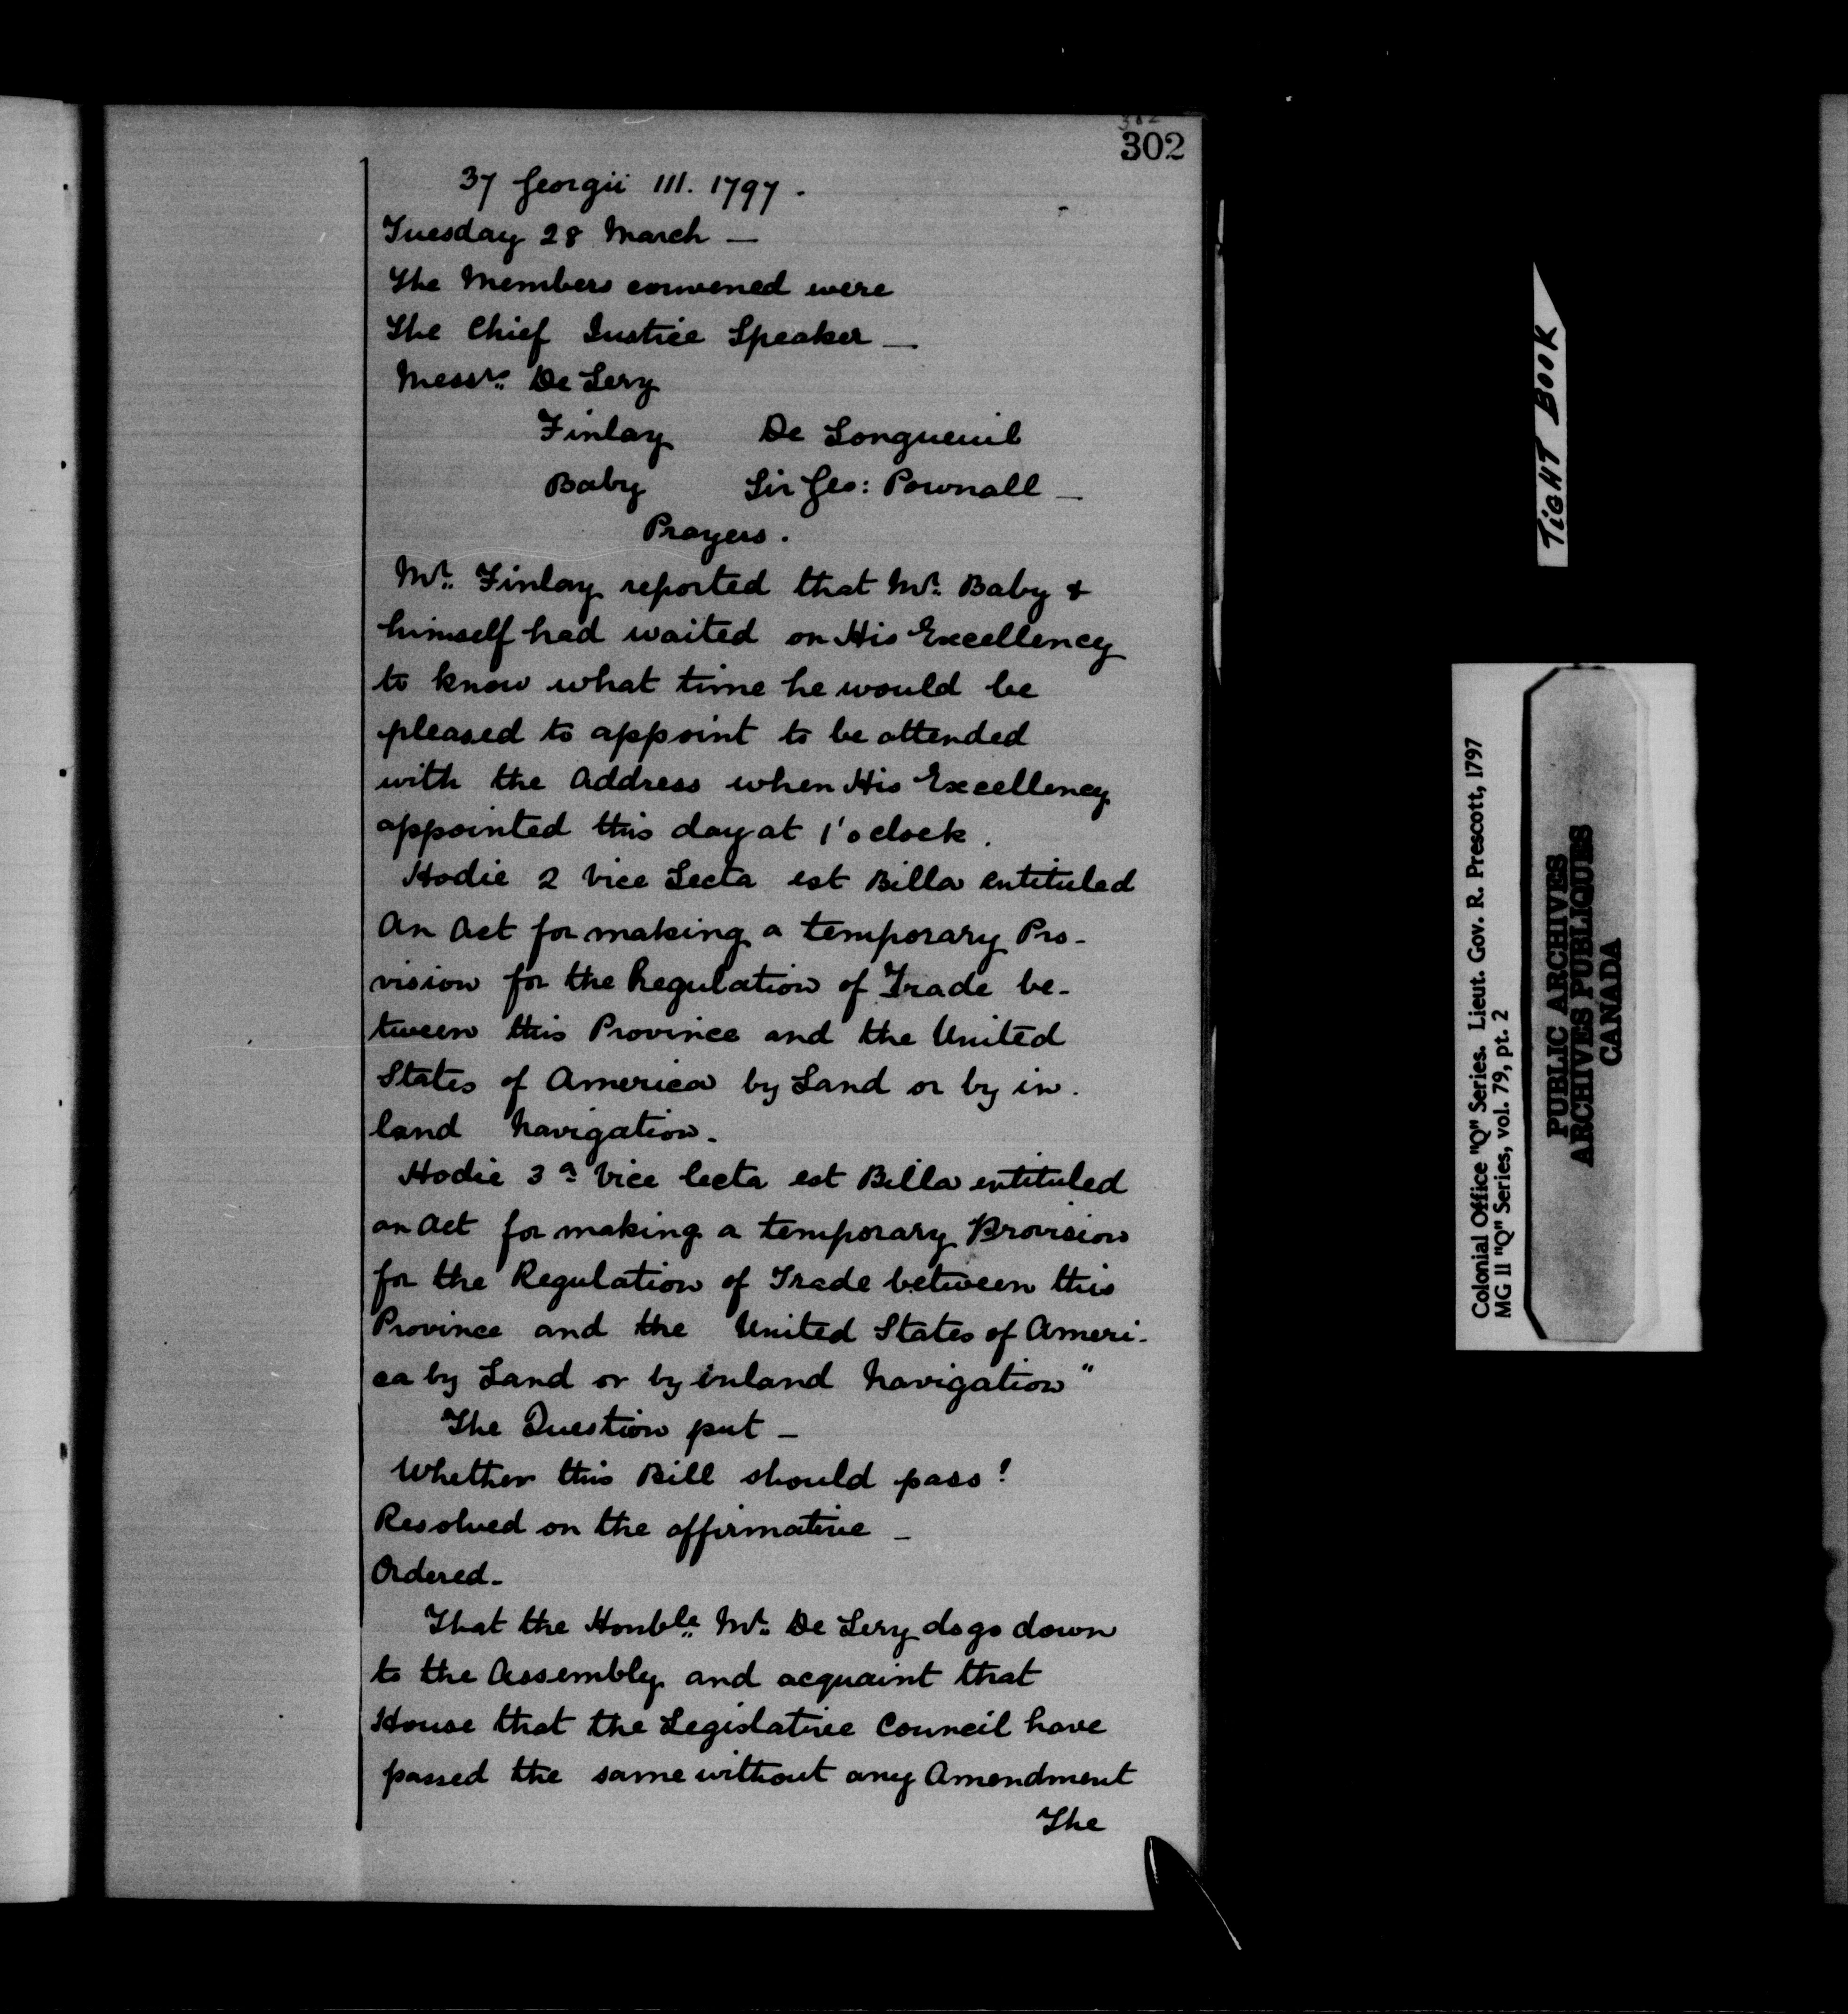 302
37 Georgii III. 1797.
Tuesday 28 March —
The Members convened were
The Chief Justice Speaker —
Messrs. De Lery
Finlay De Longueuil
Baby Sir Geo: Pownall —
Prayers.
Mr. Finlay reported that Mr. Baby &
himself had waited on His Excellency
to know what time he would be
pleased to appoint to be attended
with the Address when His Excellency
appointed this day at 1'oclock.
Hodie 2 Vice Lecta est Billa entituled
An Act for making a temporary Pro-
vision for the Regulation of Trade be-
tween this Province and the United
States of America by Land or by in-
land Navigation.
Hodie 3a Vice lecta est Billa entituled
an Act for making a temporary Provision
for the Regulation of Trade between this
Province and the United States of Ameri-
ca by Land or by inland Navigation"
The Question put —
Whether this Bill should pass?
Resolved on the affirmative —
Ordered —
That the Honble. Mr. De Lery do go down
to the Assembly and acquaint that
House that the Legislative Council have
passed the same without any Amendment
The
TIGHT BOOK
Colonial Office "Q" Series. Lieut. Gov. R. Prescott, 1797
MG 11 "Q" Series, vol. 79, pt. 2
PUBLIC ARCHIVES
ARCHIVES PUBLIQUES
CANADA